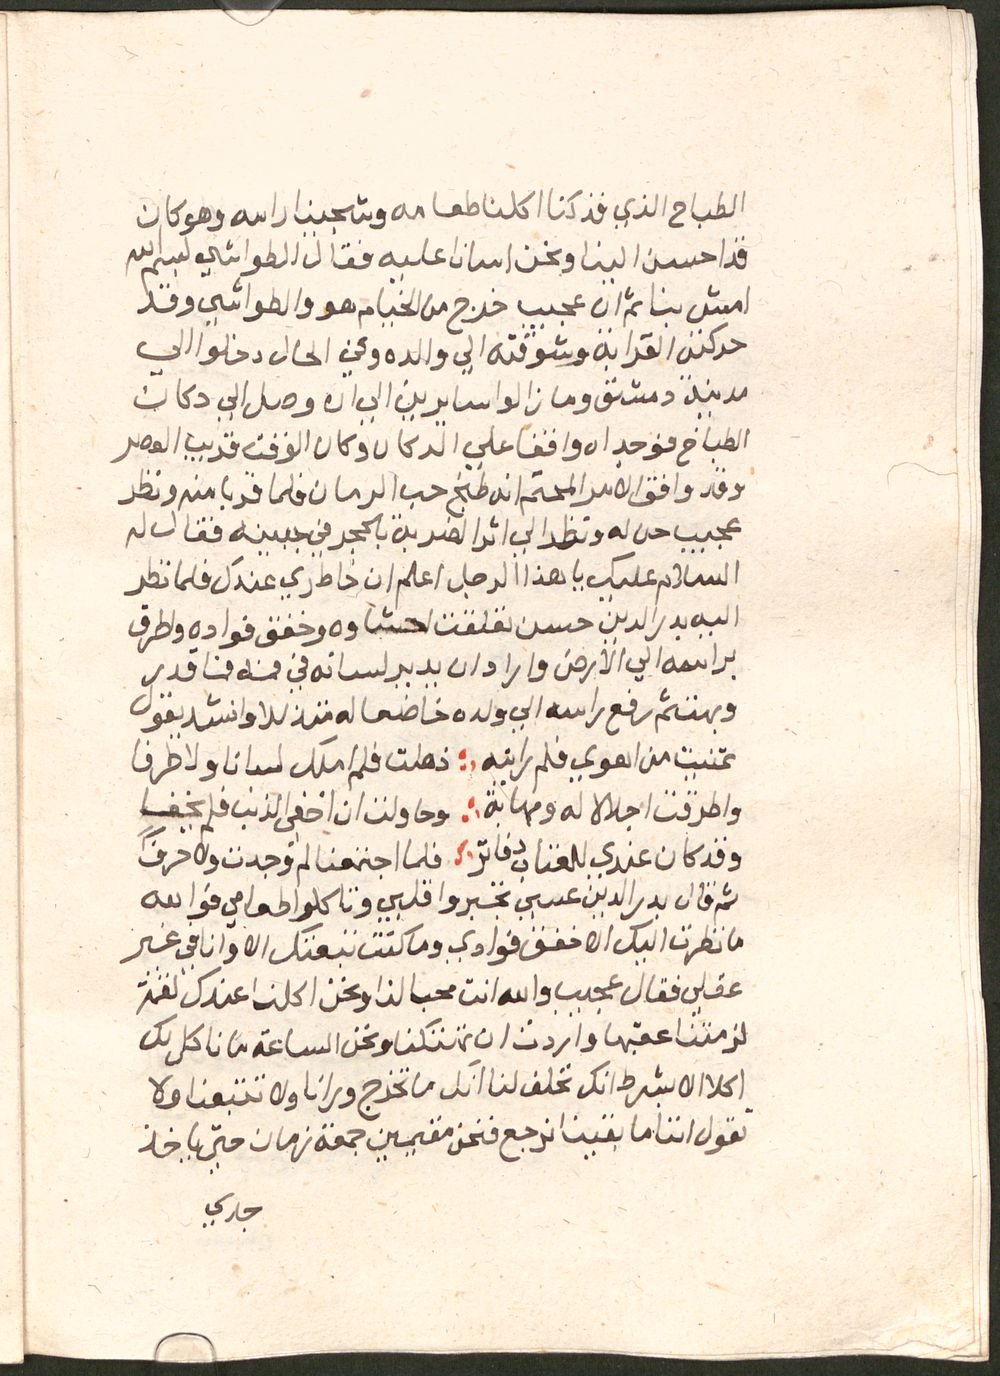 الطباخ الذي قد كنا اكلنا طعامه وشجينا راسه وهو كان
قد احسن الينا ونحن اسانا عليه فقال الطواشي بسم الله
امش بنا ثم ان عجيب خرج من الخيام هو والطواشي وقد
حركته القرابة وشوقته الي والده وفي الحال دخلوا الي
مدينة دمشق وما زالوا سايرين الي ان وصل الي دكان
الطباخ فوجداه واقفا علي الدكان وكان الوقت قريب العصر
وقد وافق الامر المحتم انه طبخ حب الرمان فلما قربا منه ونظر
عجيب حن له ونظر الي اثر الضربة بالحجر في جبينه فقال له
السلام عليك يا هذا الرجل اعلم ان خاطري عندك فلما نظر
اليه بدر الدين حسن تقلقت احشاوه وخفق فواده واطرق
براسه الي الارض واراد ان يدير لسانه في فمه فما قدر
وبهت ثم رفع راسه الي ولده خاضعا له متذللا وانشد يقول
تمنيت من اهوي فلم رايته ؛ ذهلت فلم املك لسانا ولا طرفا
واطرقت اجلالا له ومهابة ؛ وحاولت ان اخفي الذنب فلم يخفا
وقد كان عندي للعتاب دفاتر ؛ فلما اجتمعنا لم وجدت ولا حرفا
ثم قال بدر الدين عسي تجبروا قلبي وتاكلوا طعامي فوالله
ما نظرت اليك الا خفق فوادي وما كنت تبعتك الا وانا في غير
عقلي فقال عجيب والله انت محبا لنا ونحن اكلنا عندك لقمة
لزمتنا عقبها واردت ان تهتكنا ونحن الساعة ما ناكل لك
اكلا الا بشرط انك تحلف لنا انك ما تخرج ورانا ولا تتبعنا ولا
تقول اننا ما بقينا نرجع فنحن مقيمين جمعة زمان حتي ياخذ
جدي